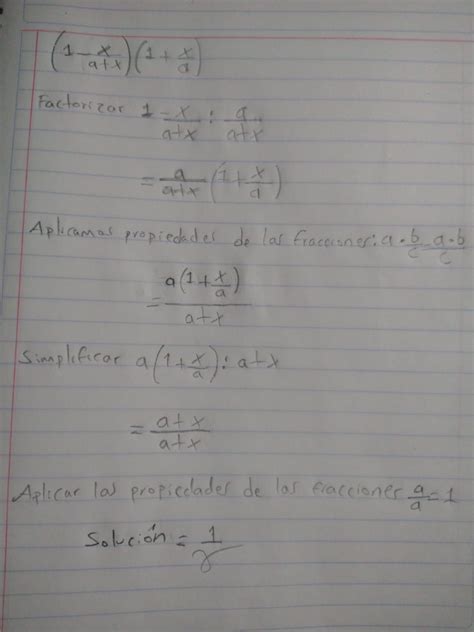 (1 - x/a+x)(1 + x/a)
Factorizar 1 - x/a+x : a/a+x
= a/a+x (1 + x/a)
Aplicamas propiedades de las fracciones: a · b/c a · b/c
= a(1 + x/a)/a+x
Simplificar a(1 + x/a): a+x
= a+x/a+x
Aplicar las propiedades de las fracciones a/a = 1
Solución = 1